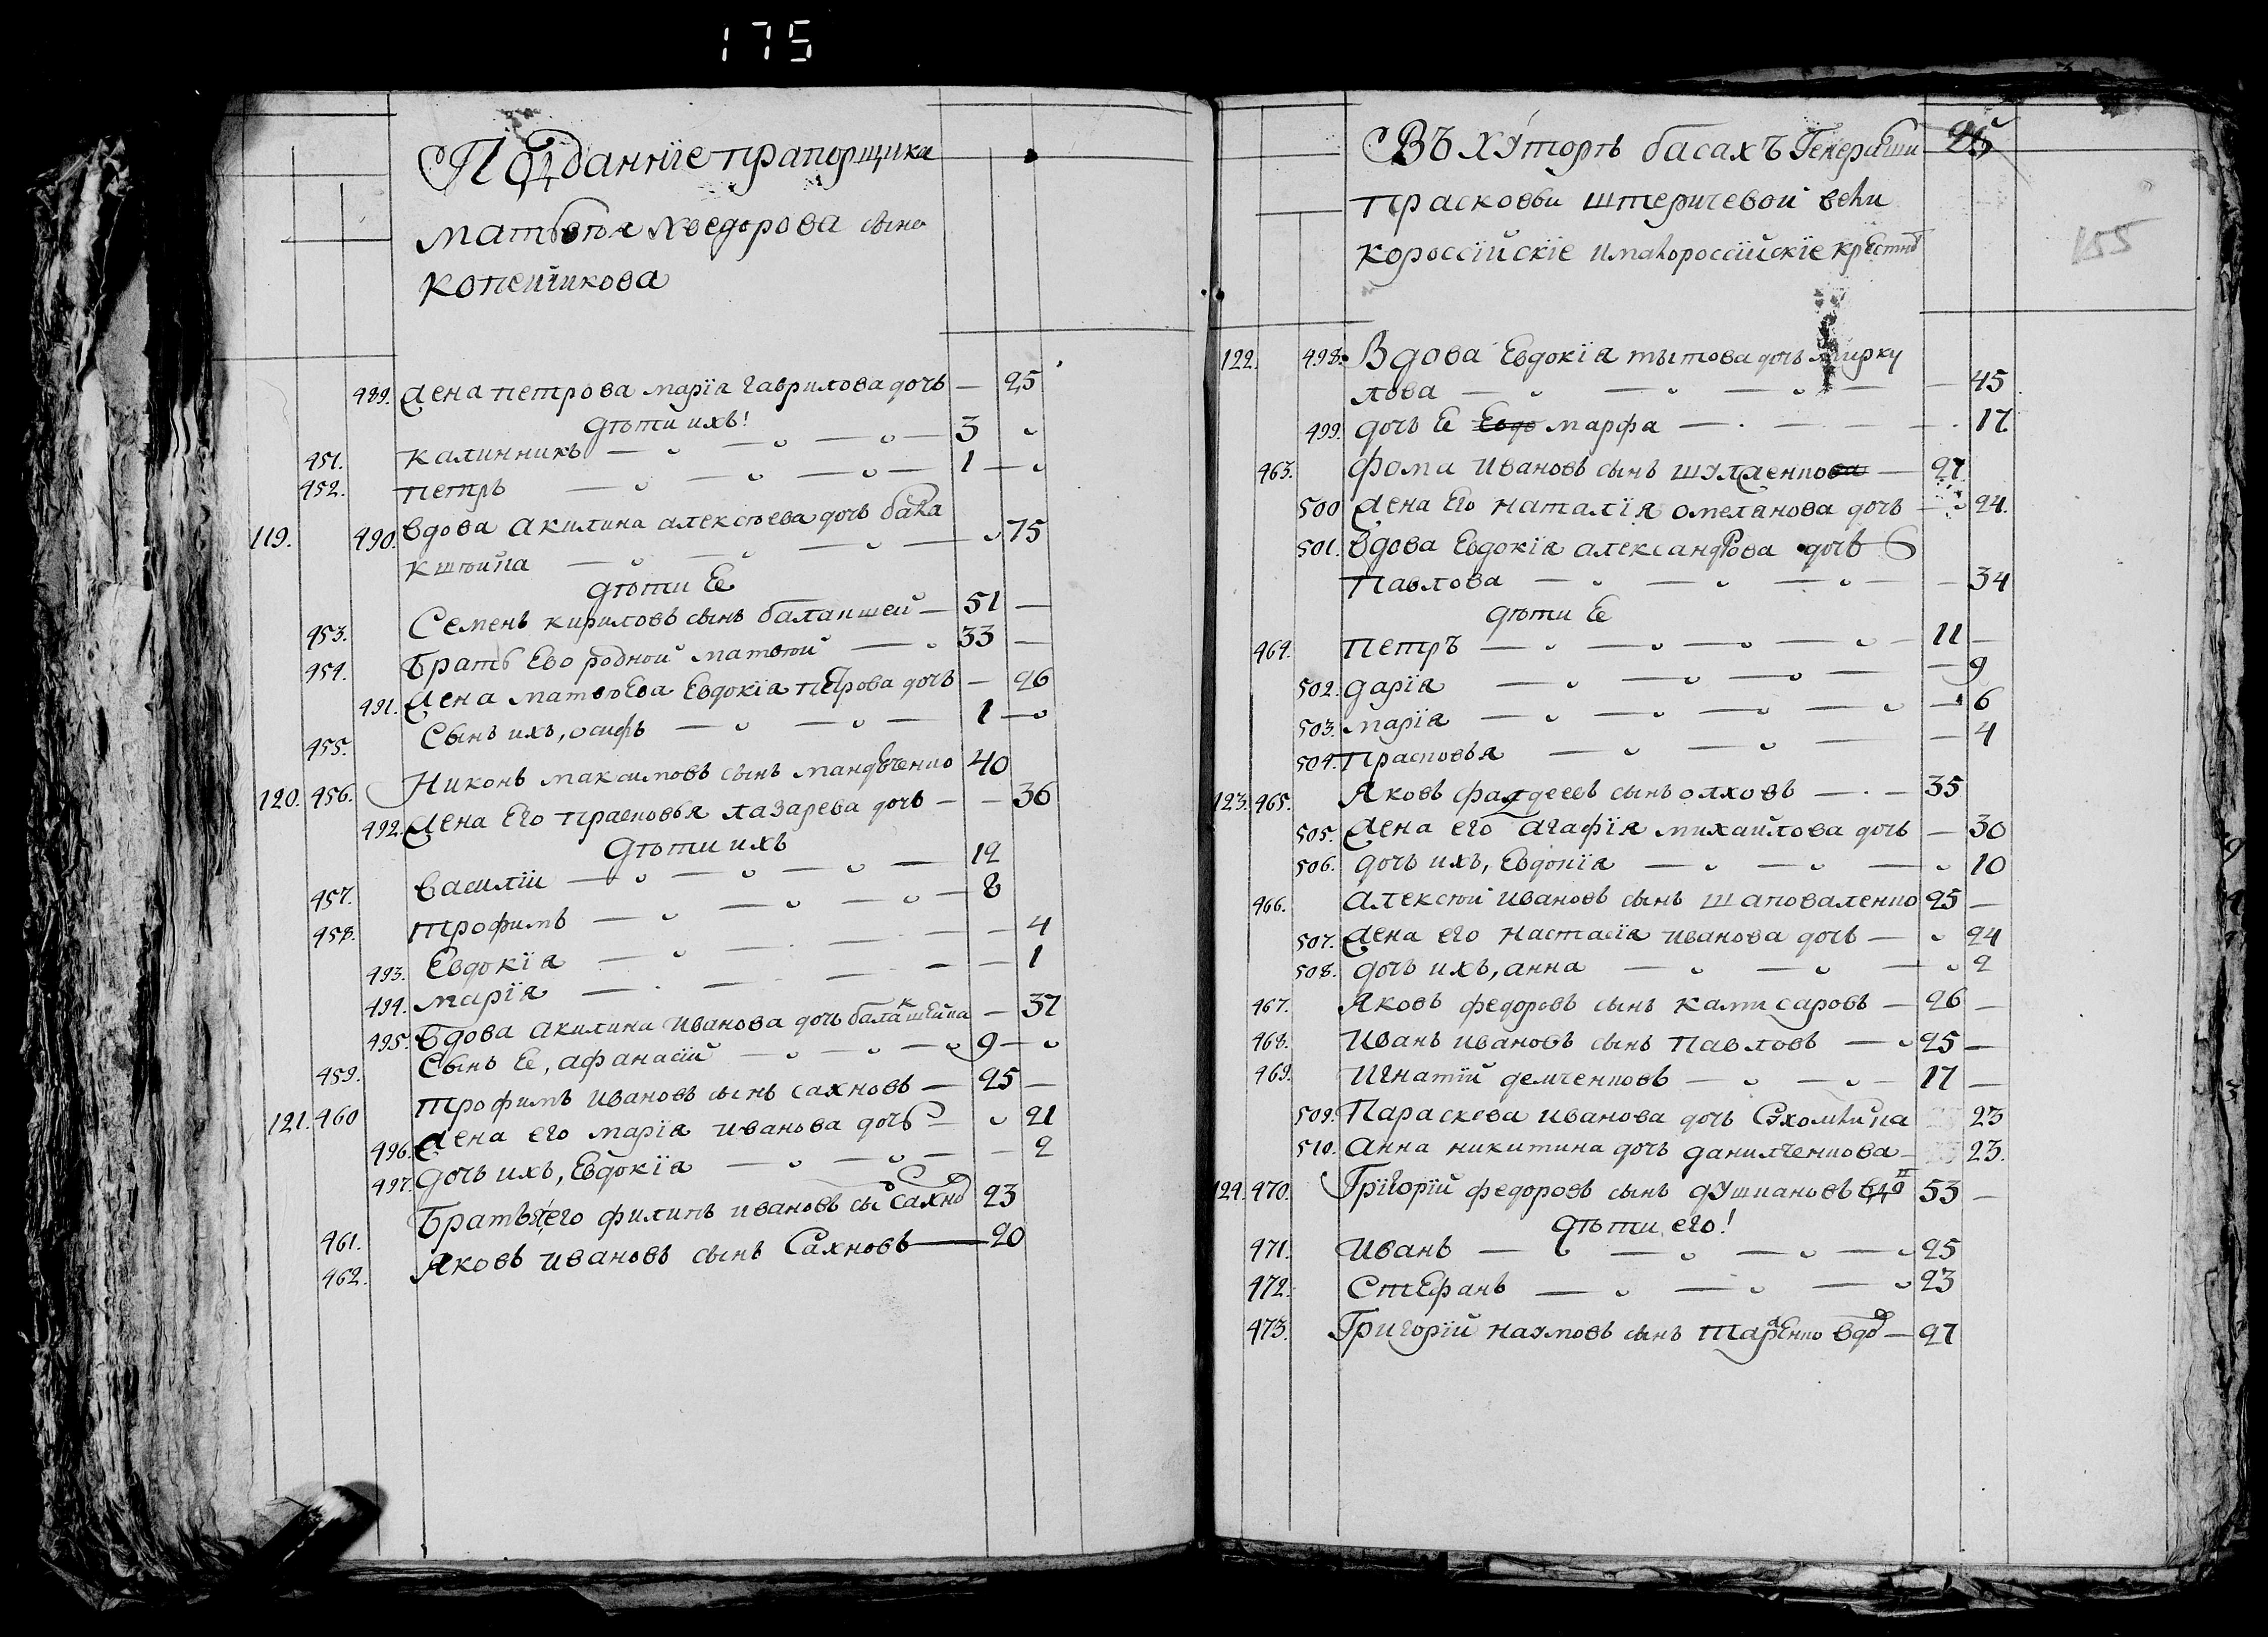 175
Подданніе прапорщика
матвѣя хведорова сына
копейчикова
489. жена петрова маріа гаврилова дочь — 25
дѣти ихъ!
451. калинникъ — 3
452. петръ — 1 —
119. 490. вдова акилина алексѣева дочь бала
кшѣйка — 75
дѣти ее
453. Семенъ кириловъ сынъ балакшей — 51 —
454. братъ ево родной матвѣй — 33 —
491. жена матвѣева Евдокіа петрова дочь — 26
455. Сынъ ихъ, осифъ — 1 —
120. 456. Никонъ максимовъ сынъ 40
492. жена его прасковья лазарева дочь — — 36
дѣти ихъ
457. василій — 12
458. трофимъ — 8
493. Евдокіа — 4
494. маріа — 1
495. вдова акилина иванова дочь балакшейка — 37
459. Сынъ ее, афанасій — 9 —
121. 460 трофимъ ивановъ сынъ сахновъ — 25 —
496. жена его маріа иванова дочь — 21
497. дочь ихъ, Евдокіа — 2
461. Братья его филипъ ивановъ сы сахно 23
462. Яковъ ивановъ сынъ Сахновъ — 20
Въ хуторѣ басахъ Генеральши 95
прасковьи штеричевой вели
короссійскіе и малороссійскіе крестяне
155
122. 498. Вдова Евдокіа титова дочь мирку
лова — 45
499. дочь ее Евдо марфа — 17
463. фома ивановъ сынъ шулженкова — 27
500 жена его наталіа омелянова дочь — 24.
501. вдова Евдокіа александрова дочь
Павлова — 34
дѣти ее
464. петръ — 11 —
502. даріа — 9
503. маріа — 6
504. прасковья — 4
123. 465. Яковъ фаддеевъ сынъ олховъ — 35
505. жена его агафіа михайлова дочь — 30
506. дочь ихъ, Евдокіа — 10
466. алексѣй ивановъ сынъ шаповаленко 25 —
507. жена его настасіа иванова дочь — 24
508. дочь ихъ, анна — 2
467. Яковъ федоровъ сынъ камисаровъ — 26 —
468. Иванъ ивановъ сынъ Павловъ — 25 —
469. Игнатій демченковъ — 17 —
509. Параскева иванова дочь 23
510. анна никитина дочь данилченкова — 23.
124. 470. Григорій федоровъ сынъ вдо 53 —
дѣти его!
471. Иванъ — 25
472. Стефанъ — 23
473. Григорій наумовъ сынъ вдо — 27